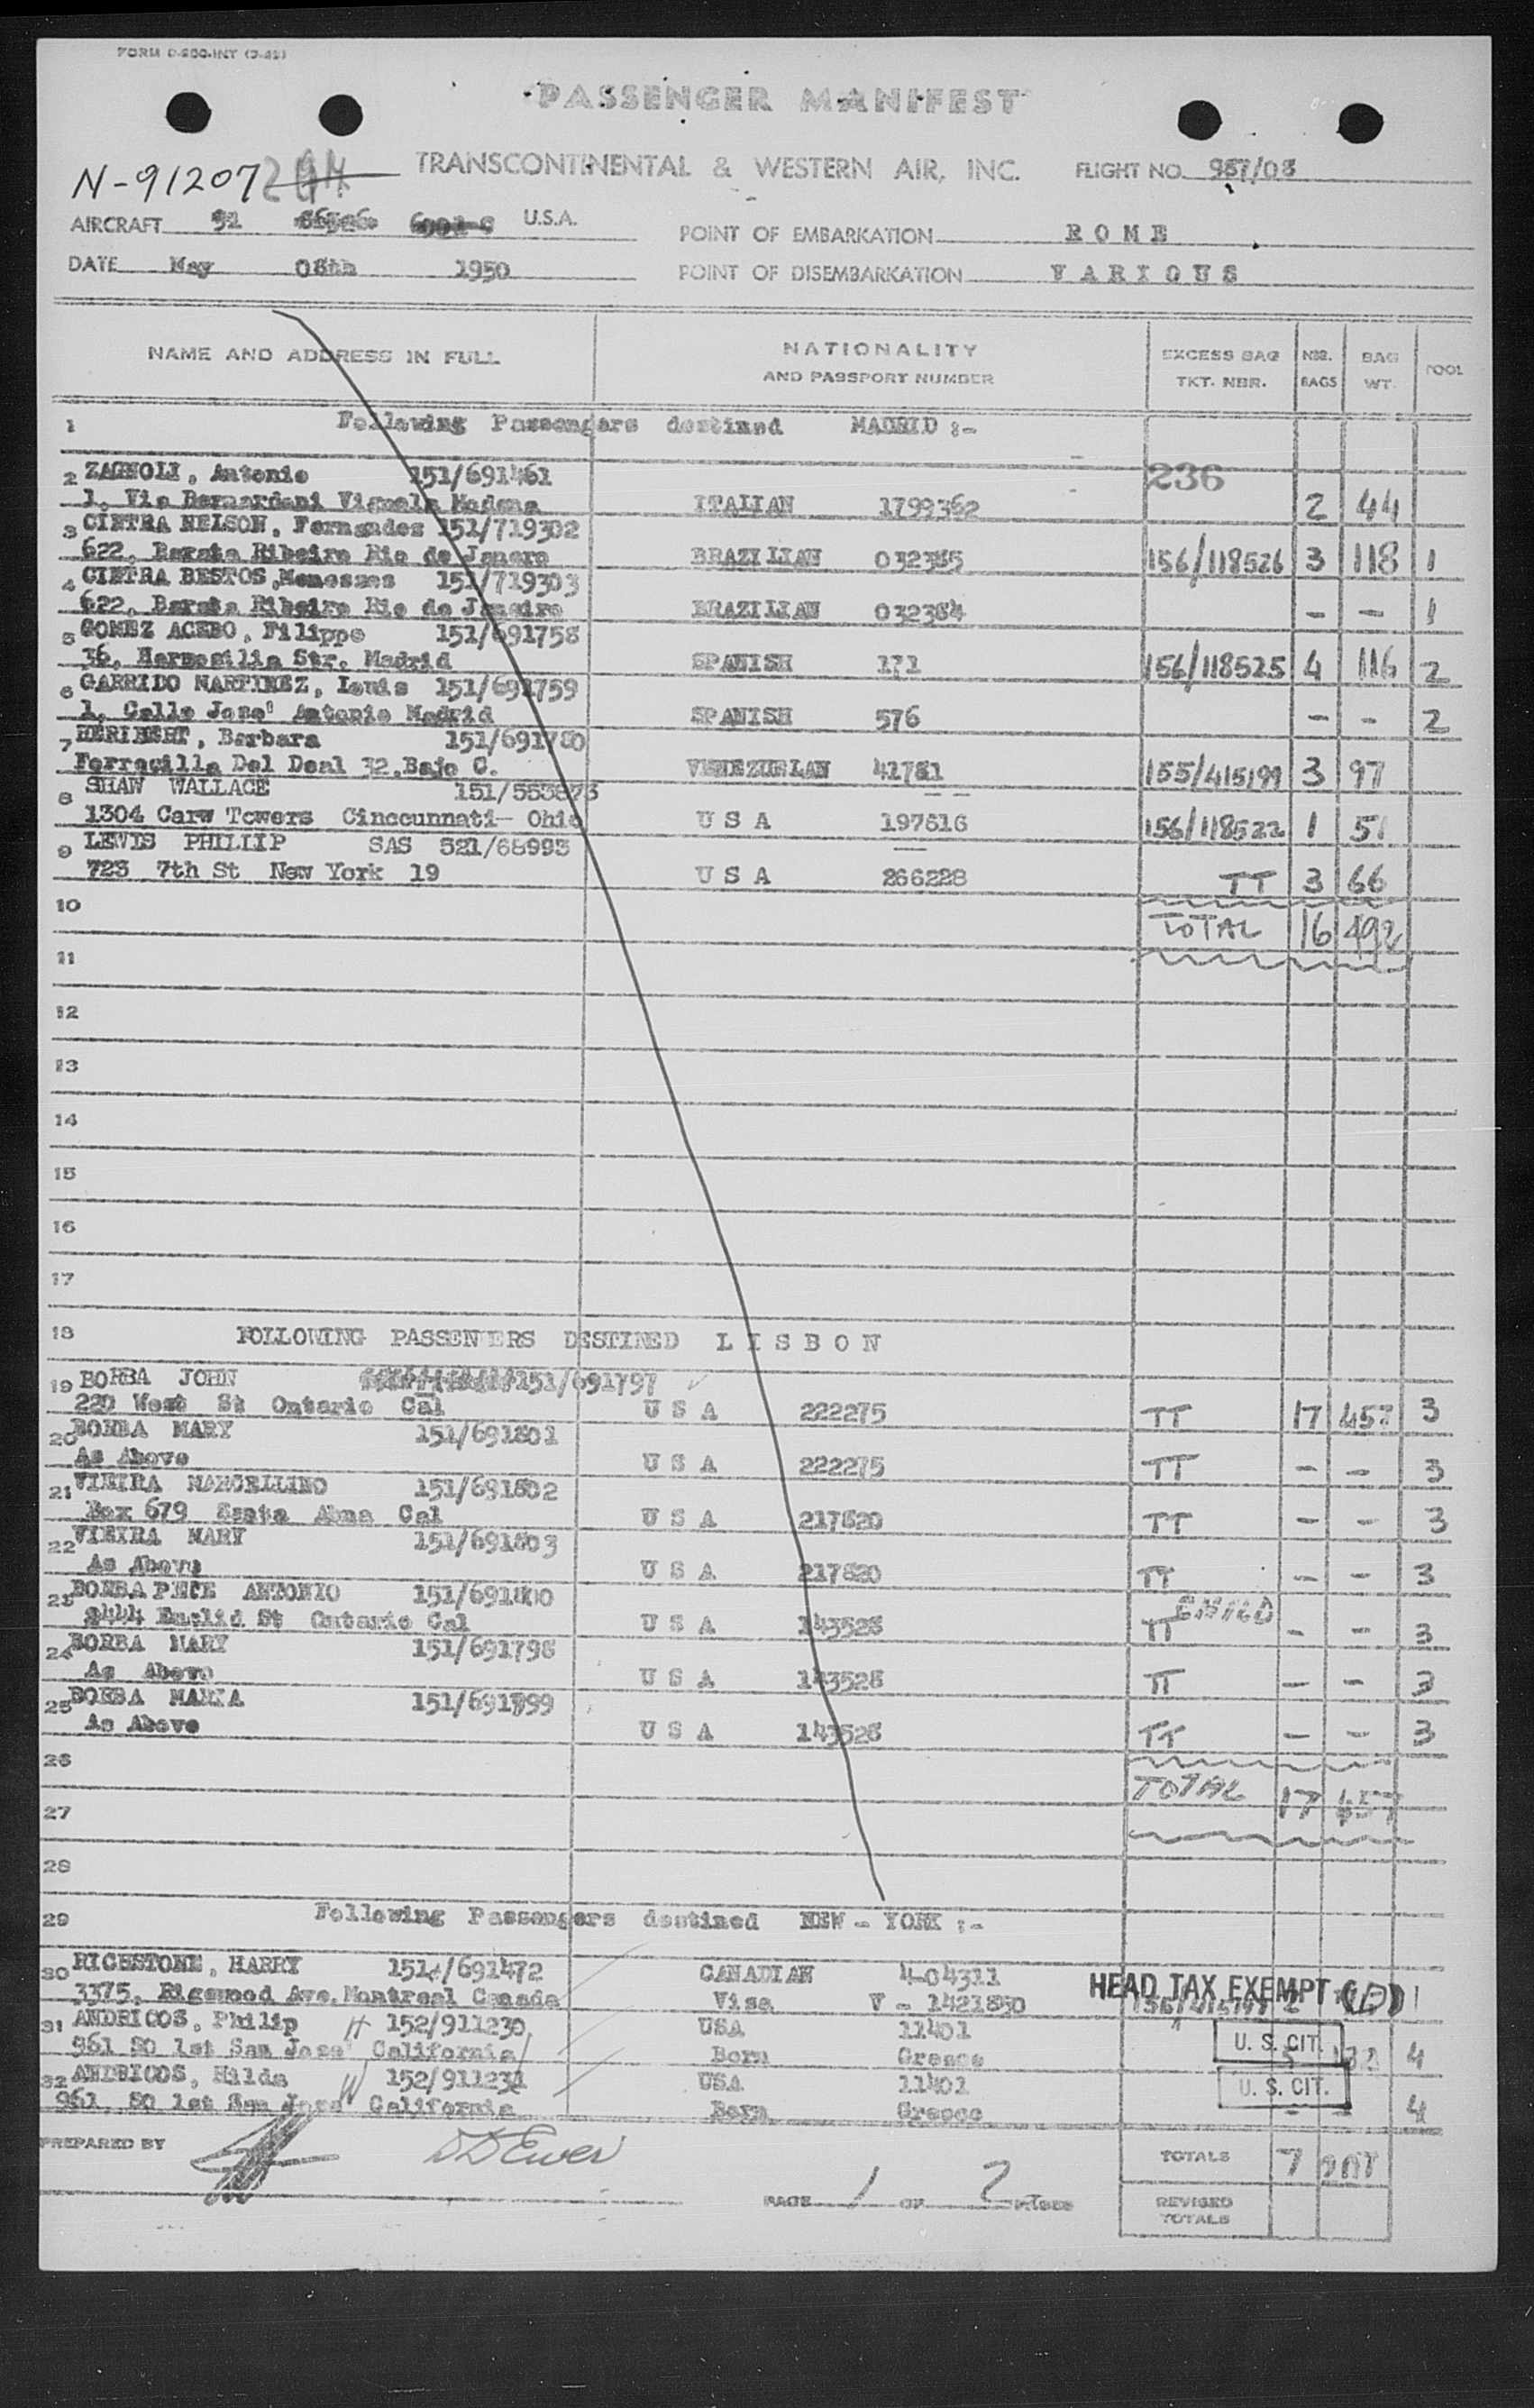 FORM
PASSENGER MANIFEST
N-91207
TRANSCONTINENTAL & WESTERN AIR, INC. FLIGHT NO. 967/08
AIRCRAFT 92 U.S.A. POINT OF EMBARKATION R O M E
DATE May 08th 1950 POINT OF DISEMBARKATION V A R I O U S
NAME AND ADDRESS IN FULL NATIONALITY AND PASSPORT NUMBER EXCESS BAG TKT. NBR. NBR. BAGS BAG WT. POOL
1 Following Passengers destined MADRID :-
236
2 ZAGNOLI, Antonio 151/691461
1, Via Bernardoni Vignola Modena ITALIAN 1799362 2 44
3 CINTRA NELSON, Fernandes 151/719302
622, Barata Ribeiro Rio de Janero BRAZILIAN 032385 156/118526 3 118 1
4 CINTRA BESTOS, Menesses 151/719303
622, Barata Ribeiro Rio de Janeiro BRAZILIAN 032384 - - 1
5 GOMEZ ACEBO, Filippo 151/691758
36, Hermosilia Str. Madrid SPANISH 171 156/118525 4 116 2
6 GARRIDO MARTINEZ, Louis 151/691759
1, Calle Jose' Antonio Madrid SPANISH 576 - - 2
7 HERIBERT, Barbara 151/691780
Ferracilla Del Deal 32, Bajo C. VENEZUELAN 41781 155/415199 3 97
8 SHAW WALLACE 151/553873
1304 Carw Towers Cinccunnati- Ohio U S A 197816 156/118522 1 51
9 LEWIS PHILLIP SAS 521/68993
723 7th St New York 19 U S A 266228 TT 3 66
10 TOTAL 16 492
11
12
13
14
15
16
17
18 FOLLOWING PASSENGERS DESTINED L I S B O N
19 BORBA JOHN 151/691797
220 West St Ontario Cal U S A 222275 TT 17 457 3
20 BORBA MARY 151/691801
As Above U S A 222275 TT - - 3
21 VIEIRA MARCELLINO 151/691802
Box 679 Santa Anna Cal U S A 217820 TT - - 3
22 VIEIRA MARY 151/691803
As Above U S A 217820 TT - - 3
23 BORBA PETE ANTONIO 151/691800
Euclid St Ontario Cal U S A 143528 TT - - 3
24 BORBA MARY 151/691798
As Above U S A 143528 TT - - 3
25 BORBA MARIA 151/691799
As Above U S A 143528 TT - - 3
26
TOTAL 17 457
27
28
29 Following Passengers destined NEW - YORK :-
30 RICHSTONE, HARRY 151/691472 CANADIAN 4-04311
3375, Rigewood Ave. Montreal Canada Visa V - 1421850 HEAD TAX EXEMPT 1
31 ANDRICOS, Philip 152/911230 USA 11401
961 SO 1st San Jose' California Born Greece U. S. CIT. 4
32 ANDRICOS, Hilda 152/911231 USA 11401
961, SO 1st San Jose' California Born Greece U. S. CIT. - - 4
PREPARED BY
PAGE 1 OF 2 PAGES
TOTALS 7
REVISED TOTALS